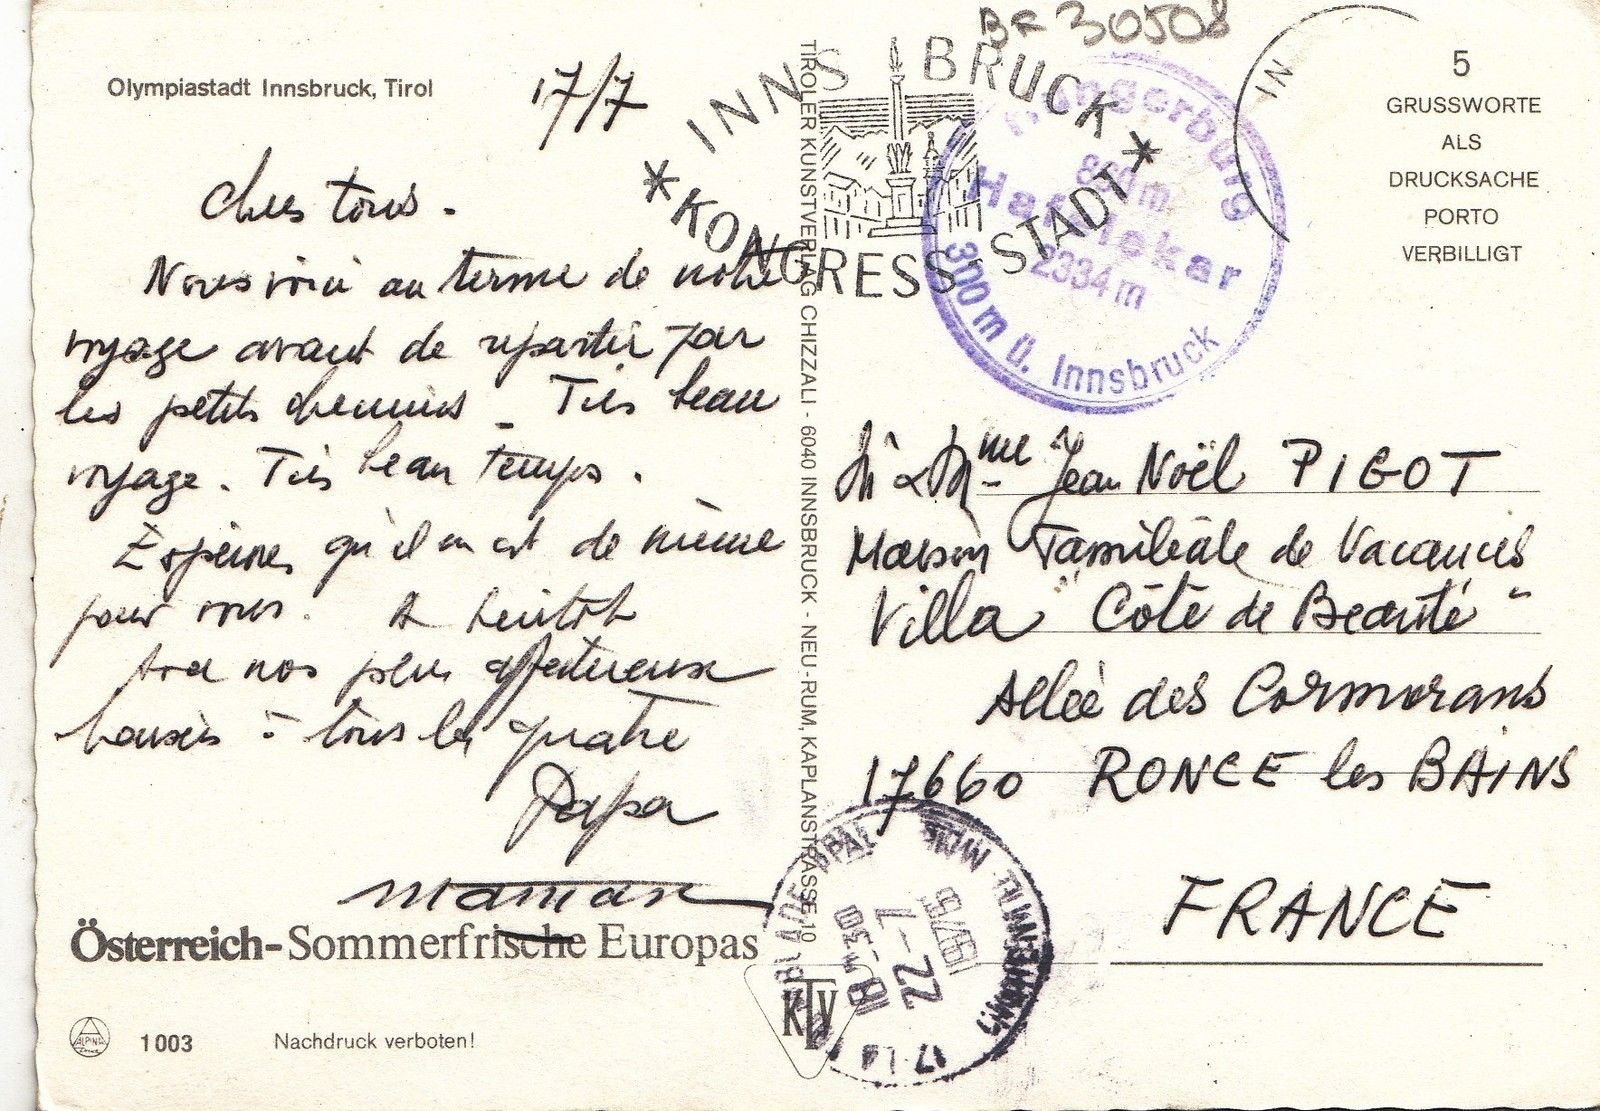 Olympiastadt Innsbruck, Tirol
17/7
Chers tous.
Nous voici au terme de notre
voyage avant de repartir par
les petits chemins. Très beau
voyage. Très beau temps.
Espérons qu'il en est de même
pour vous. A bientôt
nos plus affectueux
baisers à tous les quatre
Papa
maman
Österreich-Sommerfrische Europas
ALPINA
1 003
Nachdruck verboten!
TIROLER KUNSTVERLAG CHIZZALI - 6040 INNSBRUCK - NEU-RUM, KAPLANSTRASSE 10
KTV
BF 30508
* INNSBRUCK *
KONGRESS-STADT
Hungerburg
Hafelekar
2334 m
300 m ü. Innsbruck
IN
5
GRUSSWORTE
ALS
DRUCKSACHE
PORTO
VERBILLIGT
M & Mme Jean Noël PIGOT
Maison Familiale de Vacances
Villa "Côte de Beauté"
Allée des Cormorans
17660 RONCE les BAINS
FRANCE
18H30
22-7
1975
17